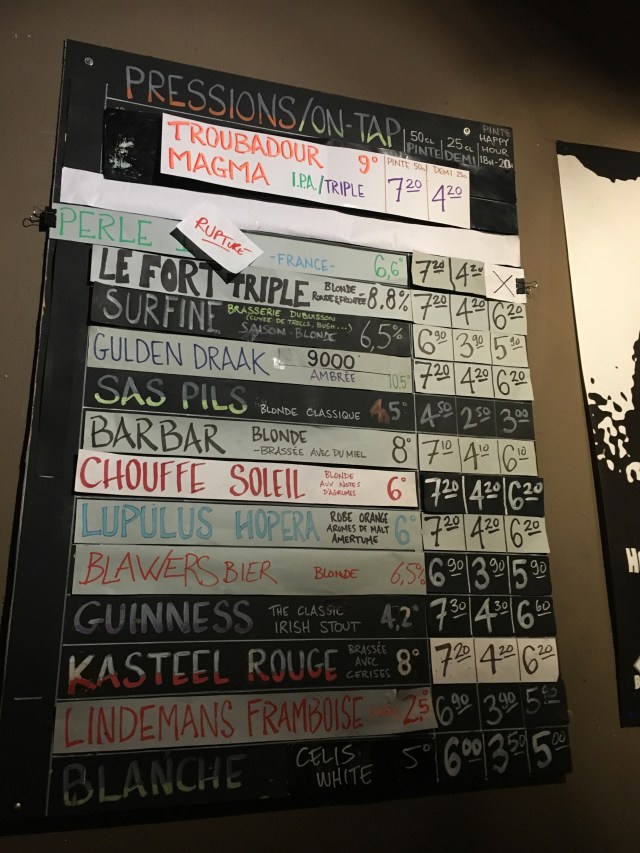 PRESSIONS/ON-TAP
50 CL PINTE
25 CL DEMI
PINTE HAPPY HOUR 18H-20H
TROUBADOUR MAGMA 9° I.P.A./TRIPLE PINTE 50cl 7 20 DEMI 25cl 4 20
RUPTURE
PERLE -FRANCE- 6,6° 7 20 4 20 X
LE FORT TRIPLE BLONDE 8,8% 7 20 4 20 6 20
SURFINE BRASSERIE DUBUISSON (CUVÉE DE TROLLS, BUSH...) SAISON-BLONDE 6,5% 6 90 3 90 5 90
GULDEN DRAAK 9000 AMBRÉE 10.5° 7 20 4 20 6 20
SAS PILS BLONDE CLASSIQUE 4,5° 4 50 2 50 3 00
BARBAR BLONDE -BRASSÉE AVEC DU MIEL 8° 7 10 4 10 6 10
CHOUFFE SOLEIL BLONDE AUX NOTES D'AGRUMES 6° 7 20 4 20 6 20
LUPULUS HOPERA ROBE ORANGE AROMES DE MALT AMERTUME 6° 7 20 4 20 6 20
BLAWERS BIER BLONDE 6,5% 6 90 3 90 5 90
GUINNESS THE CLASSIC IRISH STOUT 4,2° 7 30 4 30 6 60
KASTEEL ROUGE BRASSÉE AVEC CERISES 8° 7 20 4 20 6 20
LINDEMANS FRAMBOISE 2,5° 6 90 3 90
BLANCHE CELIS WHITE 5° 6 00 3 50 5 00